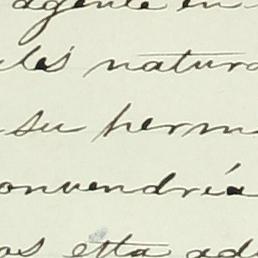 agente en
les natura
su herm
onvendría
os esta ad